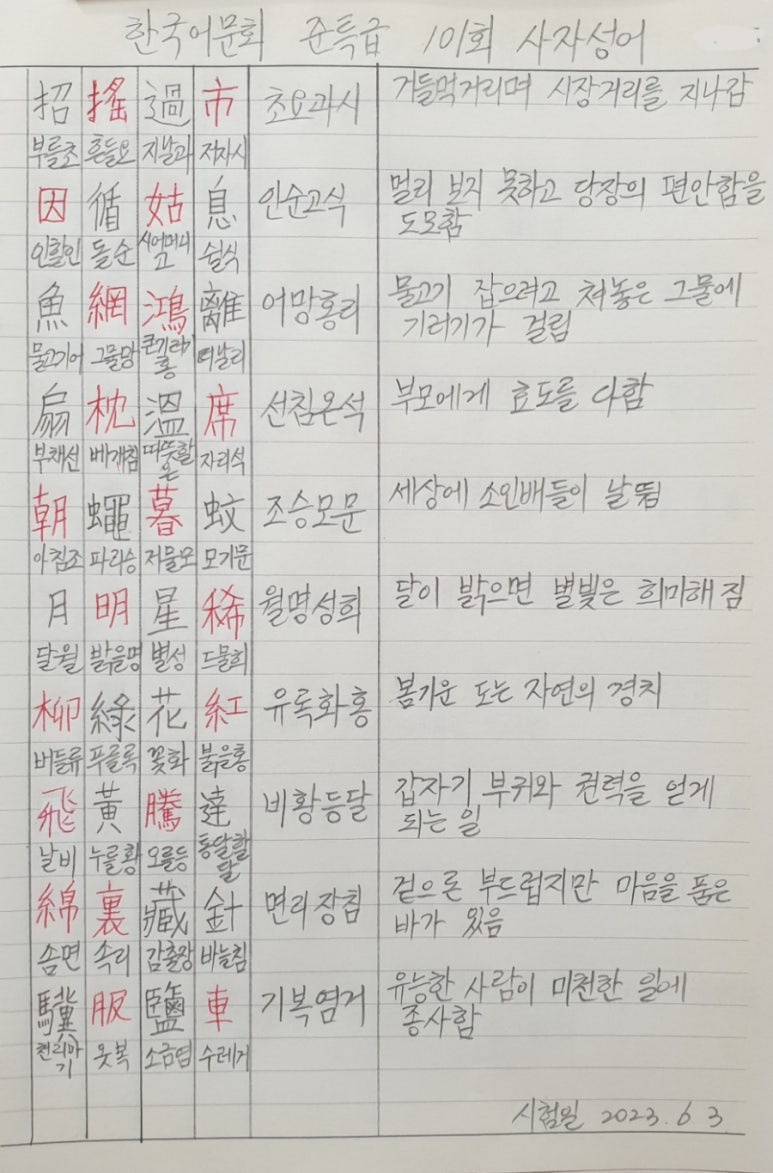 한국어문회 준특급 101회 사자성어
招 搖 過 市 초요과시 거들먹거리며 시장거리를 지나감
부를초 흔들요 지날과 저자시
因 循 姑 息 인순고식 멀리 보지 못하고 당장의 편안함을
도모함
인할인 돌순 시어머니고 쉴식
魚 網 鴻 離 어망홍리 물고기 잡으려고 쳐놓은 그물에
기러기가 걸림
물고기어 그물망 큰기러기홍 떠날리
扇 枕 溫 席 선침온석 부모에게 효도를 다함
부채선 베개침 따뜻할온 자리석
朝 蠅 暮 蚊 조승모문 세상에 소인배들이 날뜀
아침조 파리승 저물모 모기문
月 明 星 稀 월명성희 달이 밝으면 별빛은 희미해 짐
달월 밝을명 별성 드물희
柳 綠 花 紅 유록화홍 봄기운 도는 자연의 경치
버들류 푸를록 꽃화 붉을홍
飛 黃 騰 達 비황등달 갑자기 부귀와 권력을 얻게
되는 일
날비 누를황 오를등 통달할달
綿 裏 藏 針 면리장침 겉으론 부드럽지만 마음을 품은
바가 있음
솜면 속리 감출장 바늘침
驥 服 鹽 車 기복염거 유능한 사람이 미천한 일에
종사함
천리마기 옷복 소금염 수레거
시험일 2023. 6 3